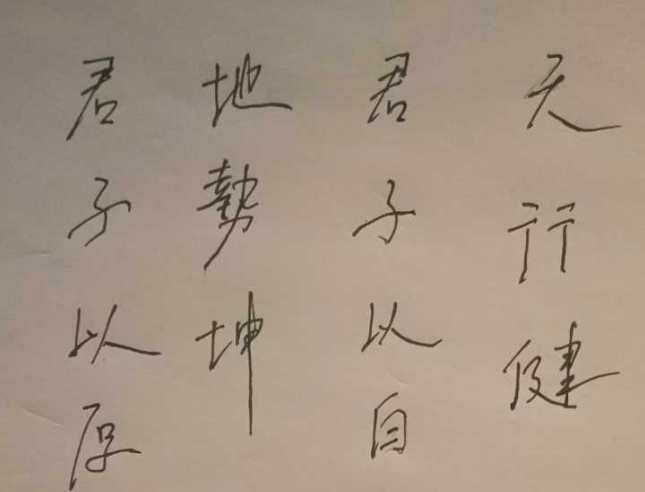 天行健
君子以自
地勢坤
君子以厚